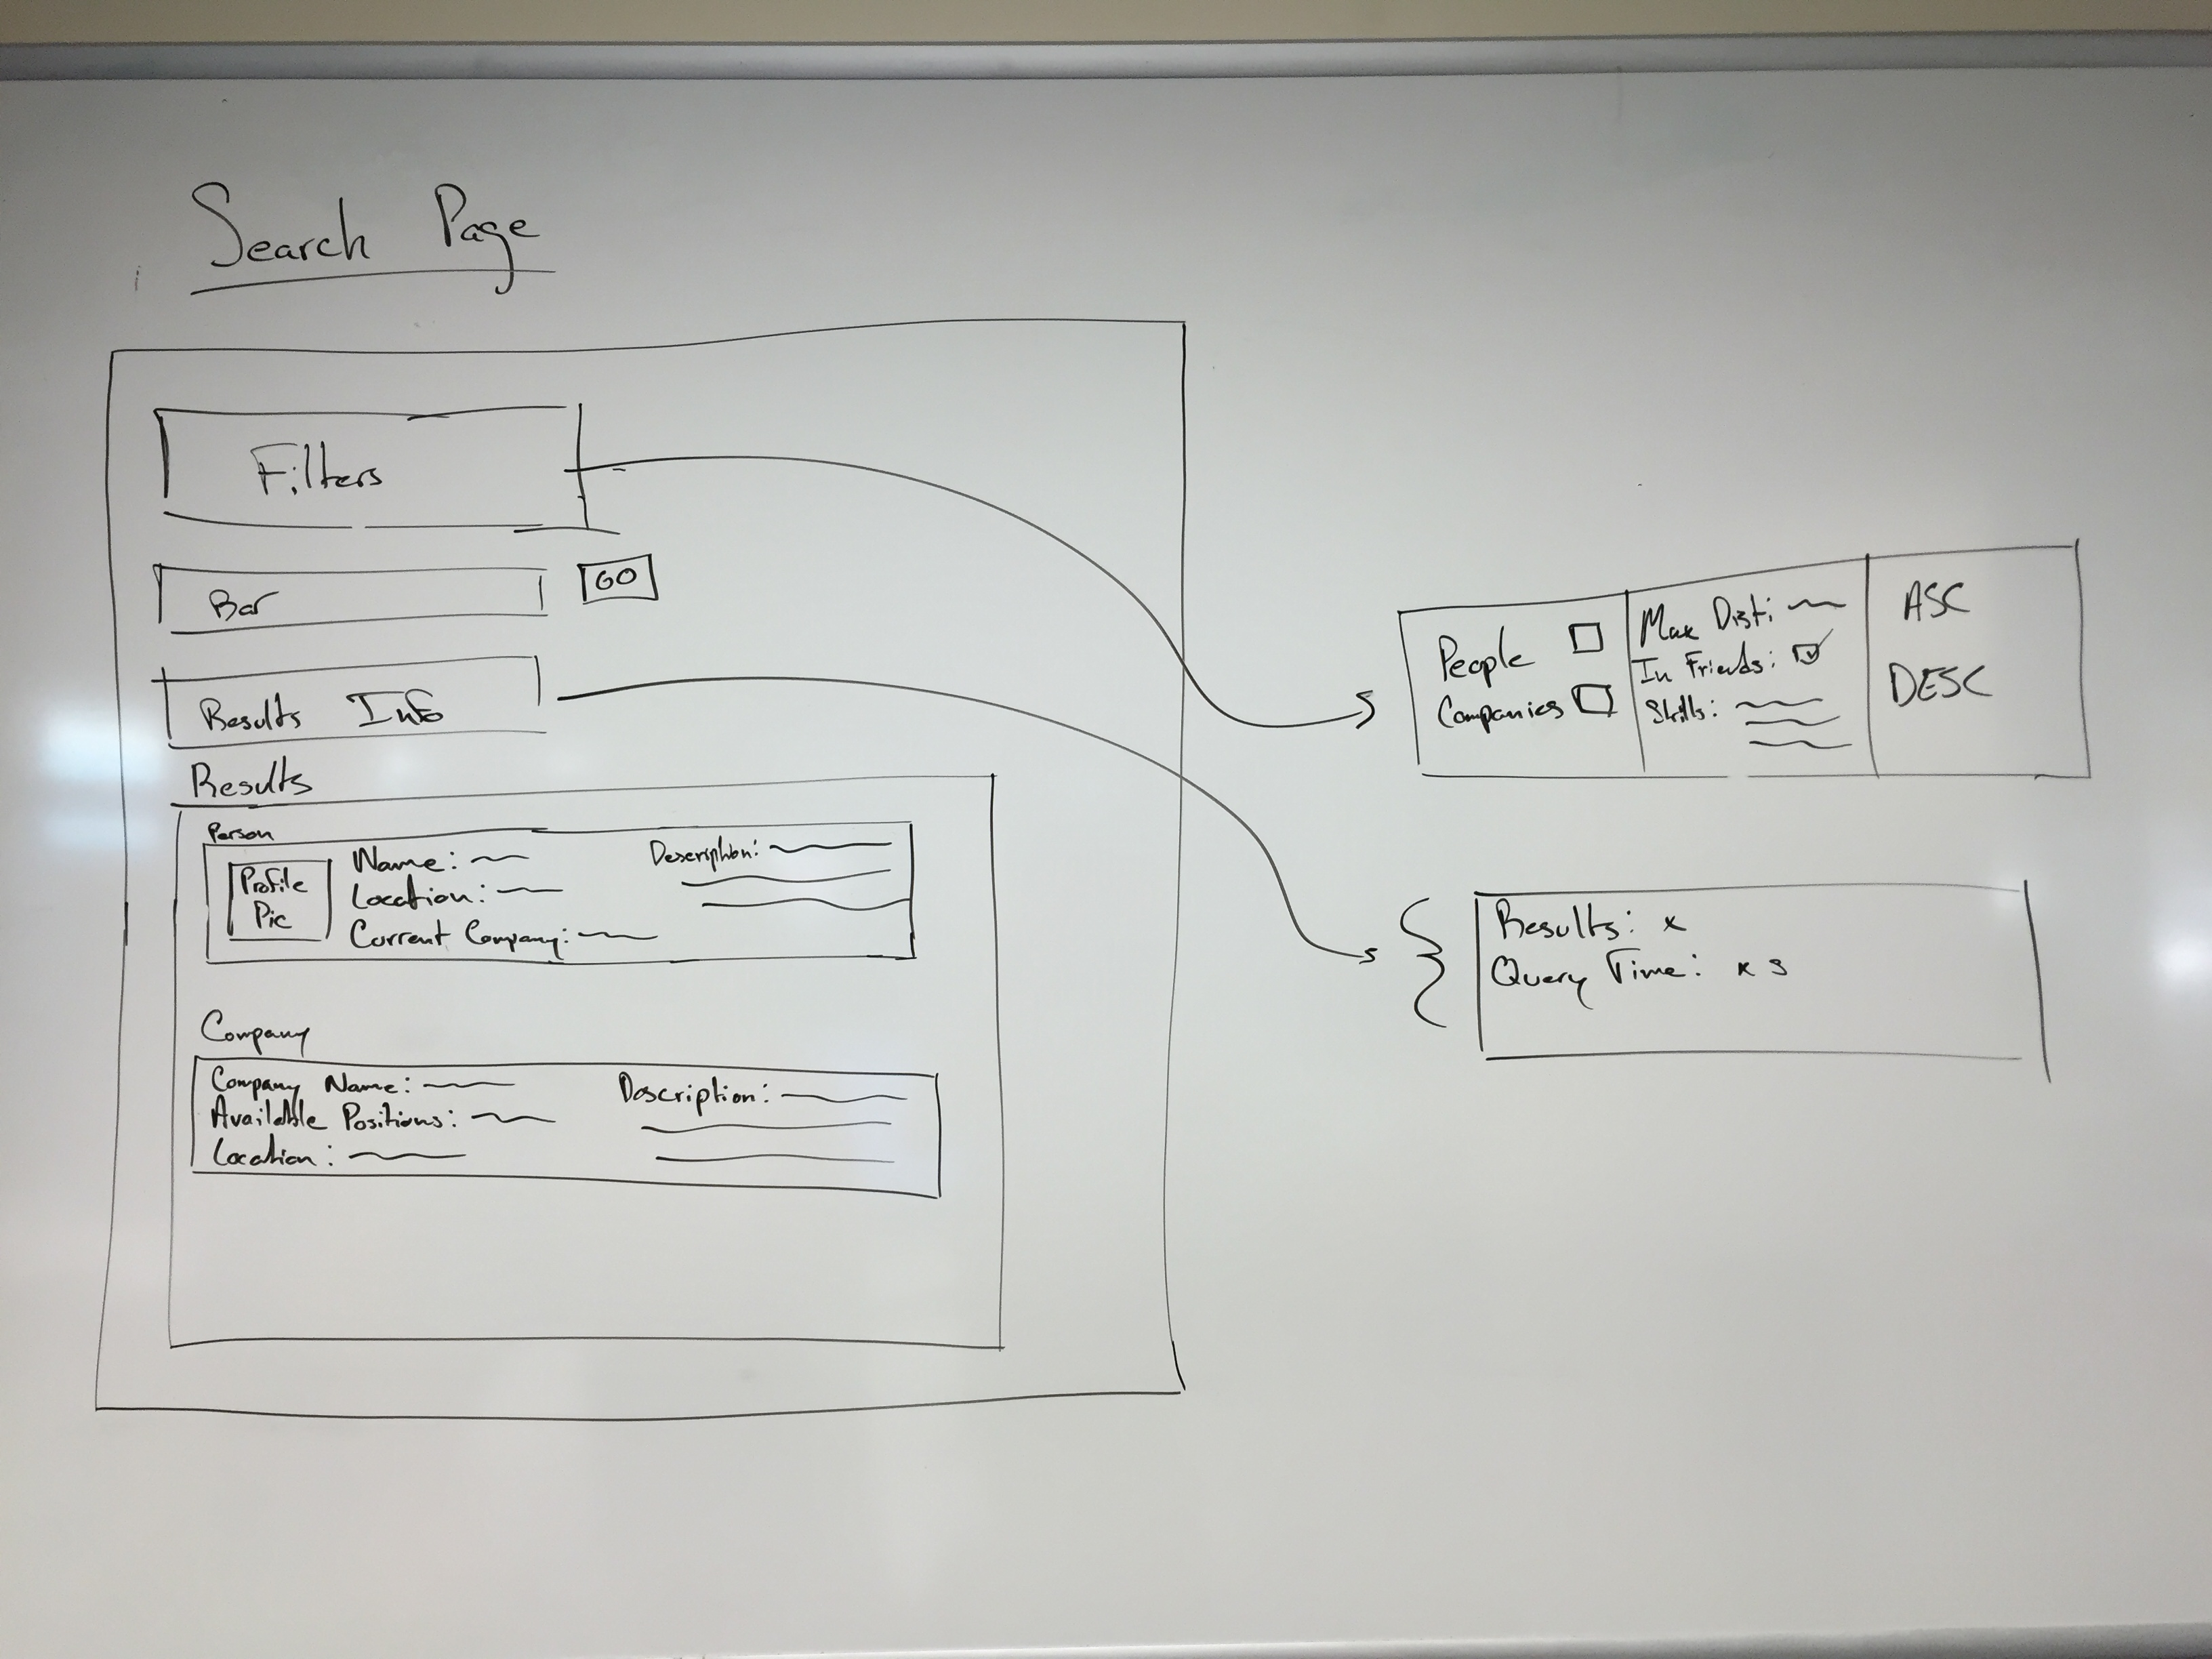 Search Page
Filters
Bar
GO
Results Info
Results
Person
Profile
Pic
Name:
Location:
Current Company:
Description:
Company
Company Name:
Available Positions:
Location:
Description:
People
Companies
Max Dist:
In Friends:
Skills:
ASC
DESC
Results: x
Query Time: x s